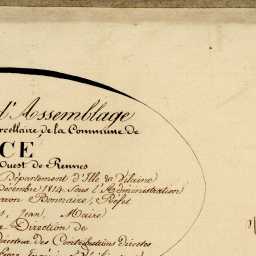 d'Assemblage
rcellaire de la Commune de
CE
Ouest de Rennes
Département d'Ille & Vilaine
Décembre 1814 Sous l'Administration
aron Bonnaire, Préfet
Jean, Maire
Direction de
Directeur des Contributions directes